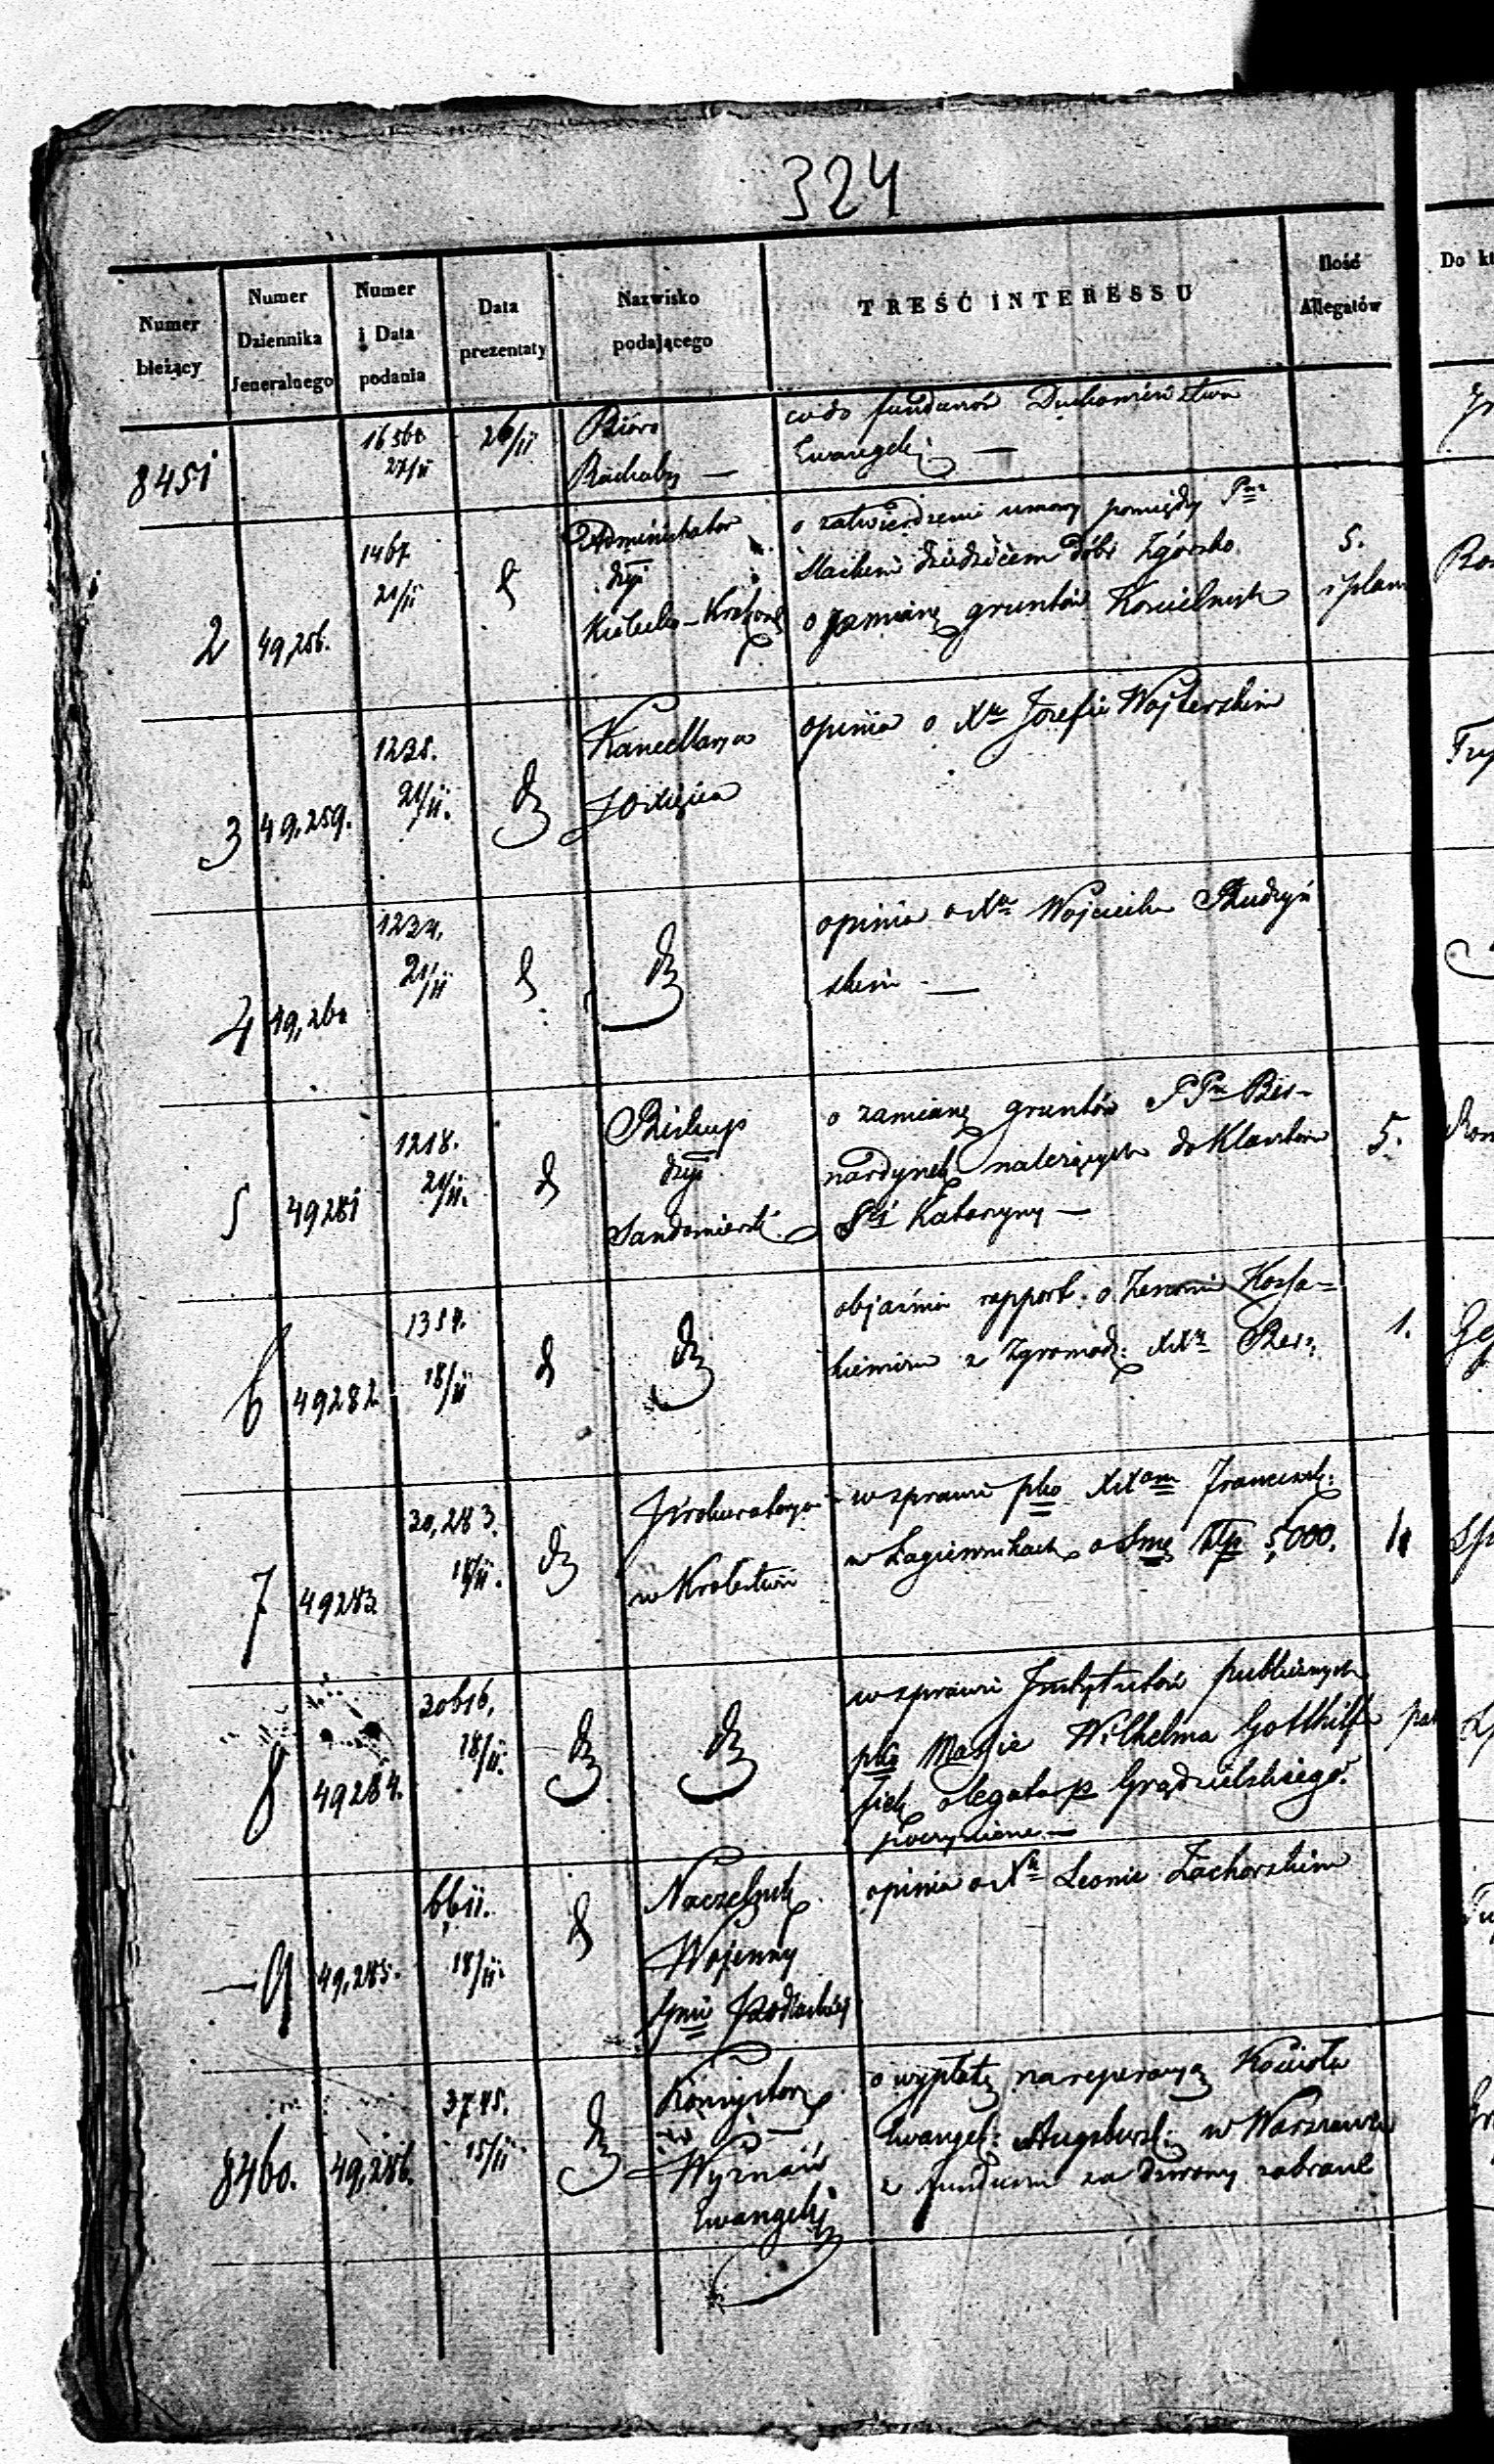 324
Numer bieżący
Numer Dziennika Jeneralnego
Numer i Data podania
Data prezentaty
Nazwisko podającego
TREŚĆ INTERESSU
Ilość Allegatów
Do kt
8451
27/11
26/11
Bióro
co do funduszów Duchowieństwa
Ewangeli. —
2
49,256.
1467
21/11
Administrator
dyji
Kielecko-Krakows
o zatwierdzenie umowy pomiędzy Pm
dziedzicem dóbr Zgórsko
o zamianę gruntów Kościelnych
5.
i plan
3
49,259.
1235.
21/11.
Kancellarya
JOXięcia
opinia o Xu Józefie Wojterskim
4
49,260
1234.
21/11
opinia o Xu Wojciechu Rudzyń
skim —
5
49281
1218.
21/11.
Biskup
dyji
Sandomierski
o zamianę gruntów PPn Ber-
nardynek należących do Klasztoru
Stej Katarzyny —
5.
6
49282
1354.
18/11
objaśnia rapport o Zenonie
z Zgromadz: XXw Ber:
1.
7
49283
30,283.
18/11.
Prokuratorya
w Królestwie
w sprawie pko XXom Franciszk:
w Łagiewnikach o Smę Złp 5,000.
8
49284.
30616,
18/11.
w sprawie Instytutów publicznych
pko Massie Wilhelma Gotthilfa
o legata pz Grądzielskiego
poczynione —
9
49,285.
6611.
18/11.
Naczelnik
Wojenny
Gnii Podlaskiej
opinia o Xu Leonie Zachorskim
8460.
49,286.
3745.
15/11
Konsystorz
Wyznań
Ewangeli
o wypłatę na reperacyą Kościoła
Ewangel: Augsbursk: w Warszawie
z funduszu za dzwony zabrane